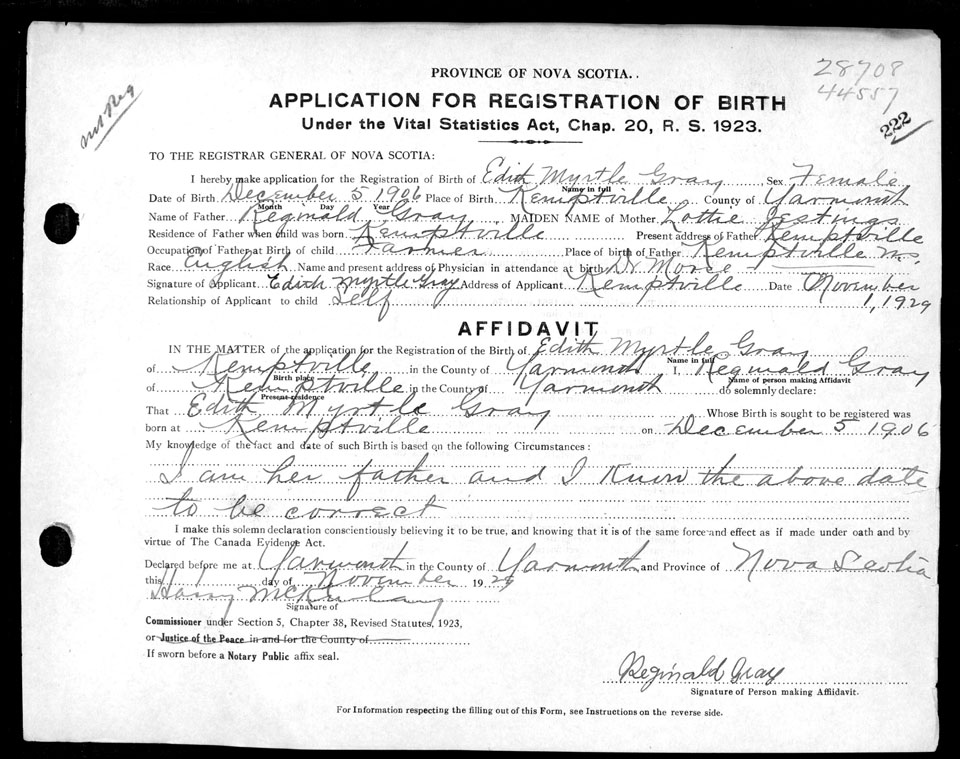 PROVINCE OF NOVA SCOTIA..
28708
44557
222
not Reg
APPLICATION FOR REGISTRATION OF BIRTH
Under the Vital Statistics Act, Chap. 20, R. S. 1923.
TO THE REGISTRAR GENERAL OF NOVA SCOTIA:
I hereby make application for the Registration of Birth of Edith Myrtle Gray Sex Female
Name in full
Date of Birth December 5 1906 Place of Birth Kemptville County of Yarmouth
Month Day Year
Name of Father Reginald Gray MAIDEN NAME of Mother Lottie Jestings
Residence of Father when child was born Kemptville Present address of Father Kemptville
Occupation of Father at Birth of child Farmer Place of birth of Father Kemptville N.S.
Race English Name and present address of Physician in attendance at birth Dr Morse
Signature of Applicant Edith Myrtle Gray Address of Applicant Kemptville Date November
Relationship of Applicant to child Self 1, 1929
AFFIDAVIT
IN THE MATTER of the application for the Registration of the Birth of Edith Myrtle Gray
Name in full
of Kemptville in the County of Yarmouth I, Reginald Gray
Birth place Name of person making Affidavit
of Kemptville in the County of Yarmouth do solemnly declare:
Present residence
That Edith Myrtle Gray Whose Birth is sought to be registered was
born at Kemptville on December 5 1906
My knowledge of the fact and date of such Birth is based on the following Circumstances:
I am her father and I know the above date
to be correct
I make this solemn declaration conscientiously believing it to be true, and knowing that it is of the same force and effect as if made under oath and by
virtue of The Canada Evidence Act.
Declared before me at Yarmouth in the County of Yarmouth and Province of Nova Scotia
this 1 day of November 1929
Harry
Signature of
Commissioner under Section 5, Chapter 38, Revised Statutes, 1923,
or Justice of the Peace in and for the County of
If sworn before a Notary Public affix seal.
Reginald Gray
Signature of Person making Affidavit.
For Information respecting the filling out of this Form, see Instructions on the reverse side.